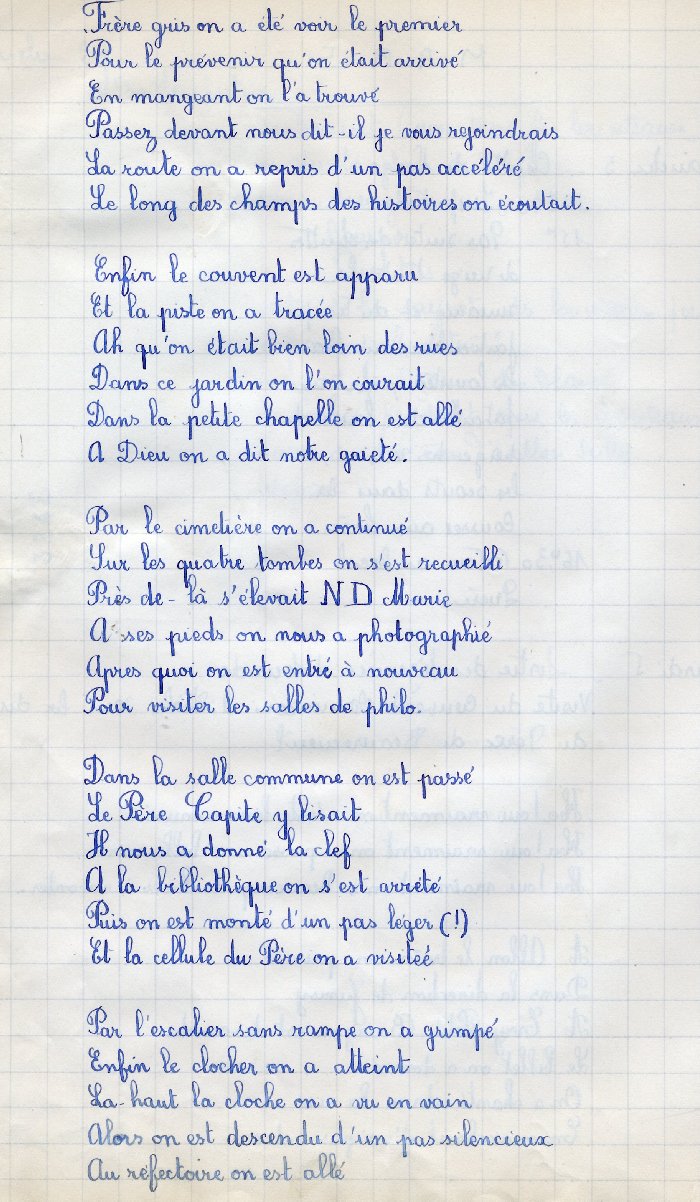 Frère gris on a été voir le premier
Pour le prévenir qu'on était arrivé
En mangeant on l'a trouvé
Passez devant nous dit-il je vous rejoindrais
La route on a repris d'un pas accéléré
Le long des champs des histoires on écoutait.
Enfin le couvent est apparu
Et la piste on a tracée
Ah qu'on était bien loin des rues
Dans ce jardin on l'on courait
Dans la petite chapelle on est allé
A Dieu on a dit notre gaieté.
Par le cimetière on a continué
Sur les quatre tombes on s'est recueilli
Près de-là s'élevait ND Marie
A ses pieds on nous a photographié
Apres quoi on est entré à nouveau
Pour visiter les salles de philo.
Dans la salle commune on est passé
Le Père Capite y lisait
Il nous a donné la clef
A la bibliothèque on s'est arrêté
Puis on est monté d'un pas léger (!)
Et la cellule du Père on a visiteé
Par l'escalier sans rampe on a grimpé
Enfin le clocher on a atteint
La-haut la cloche on a vu en vain
Alors on est descendu d'un pas silencieux
Au réfectoire on est allé